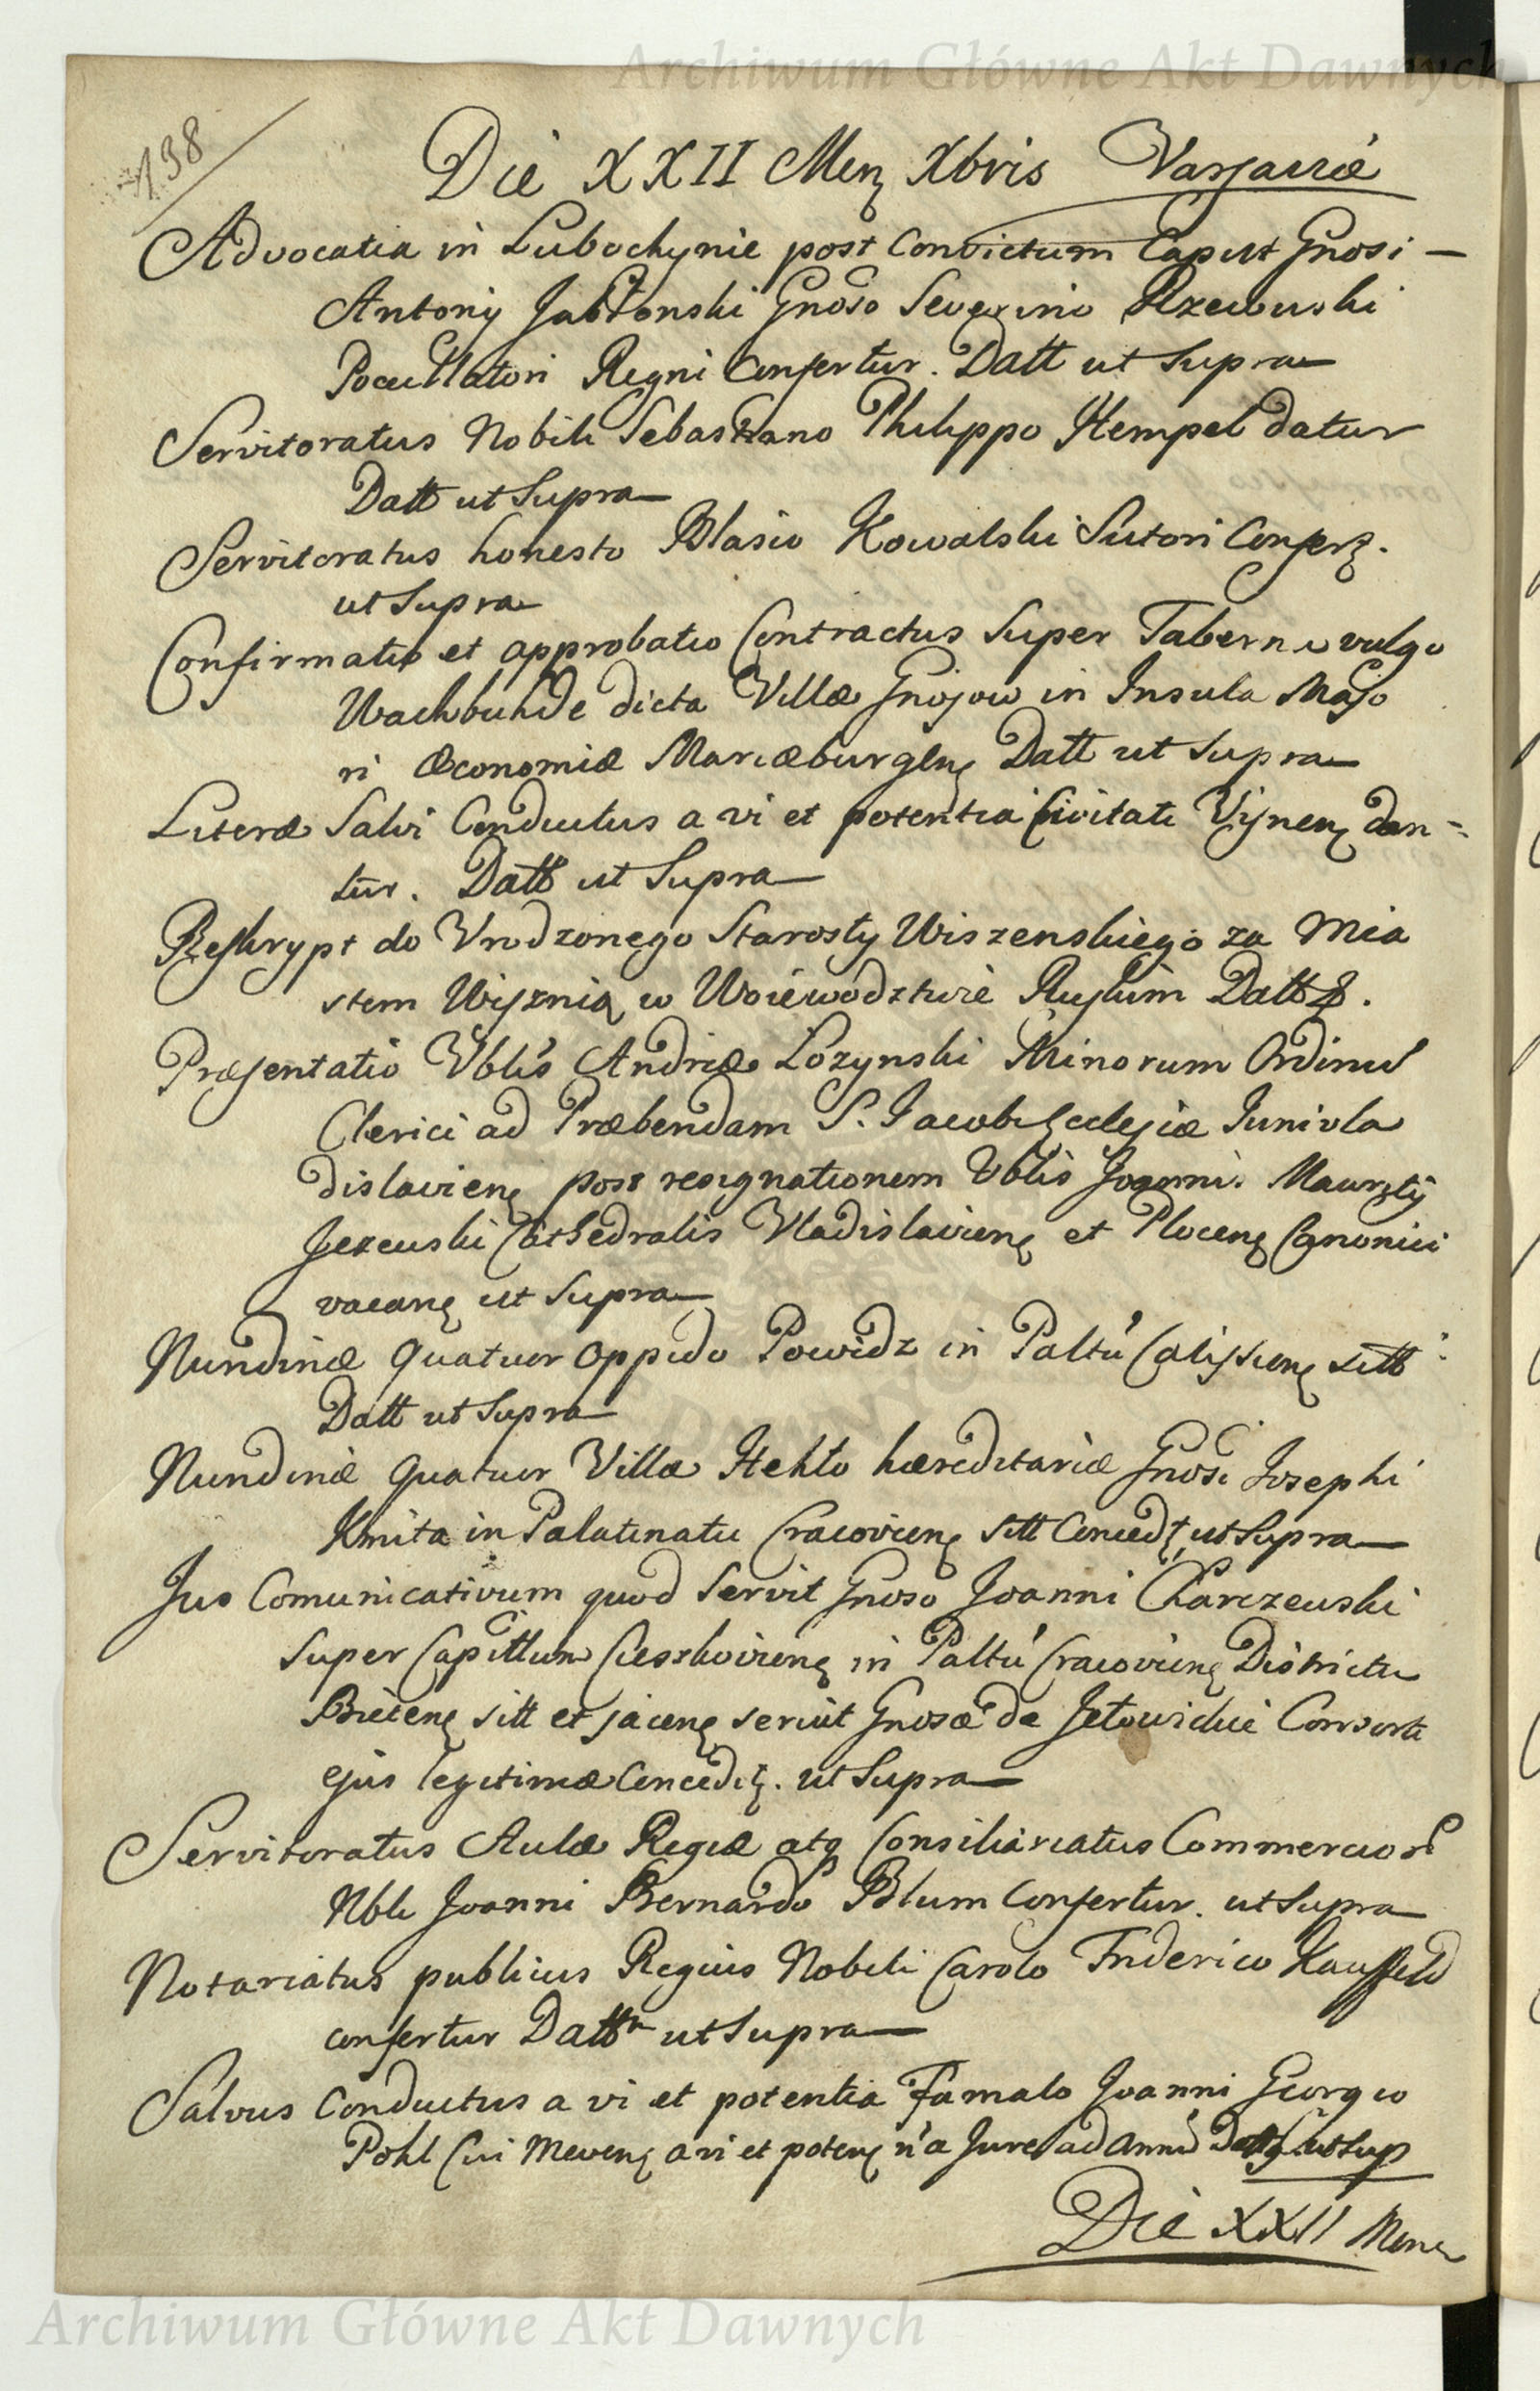 Archiwum Główne Akt Dawnych
138
Die XXII Menş Xbris Varsaviæ
Advocatia in Lubochynie post Convictum Caput Gnosi –
Antonij Jabłonski Gnoso Severino Rzewuski
Pocillatori Regni Confertur. Datt ut Supra
Servitoratus Nobili Sebastiano Philippo Hempel datur
Datt ut Supra
Servitoratus honesto Blasio Kowalski Sutori Confert.
ut Supra
Confirmatio et approbatio Contractus Super Taberna vulgo
Wachbuhde dicta Villæ Gnojow in Insula Majo
ri Œconomiæ Mariæburgen Datt ut Supra
Literæ Salvi Conductus a vi et potentia Civitati Visnen dan=
tur. Datt ut Supra
Reskrypt do Vrodzonego Starosty Wiszenskiego za Mia
stem Wisznią w Woiewodztwie Ruskim Datt
Præsentatio Vblis Andreæ Lozynski Minorum Ordinũ
Clerici ad Præbendam S. Jacobi Ecclesiæ Junivla
dislavien post resignationem Vblis Joannis Maurytij
Jezewski Cathedralis Vladislavien et Plocen Canonici
vacan ut Supra
Nundinæ quatuor oppido Powidz in Paltu Calissien sitt
Datt ut Supra
Nundinæ quatuor Villæ Hekto hæreditariæ Gnosi Josephi
Kmita in Palatinatu Cracovien sitt Conced ut Supra
Jus Comunicativum quod Servit Gnoso Joanni Charczewski
super Capittum Cieszkovien in Paltu Cracovien Districtu
Biecen sitt et jacen serviit Gnosæ de Jetowickie Consorti
ejus legitimæ Concedit. ut Supra
Servitoratus Aulæ Regiæ atq Consiliariatus Commercior
Nbli Joanni Bernardo Blum Confertur. ut Supra
Notariatus publicus Regius Nobili Carolo Friderico Kauffeld
confertur Datt ut Supra
Salvus Conductus a vi et potentia Famato Joanni Georgio
Pohl Civi Meven a vi et poten n̄ a Jure ad Annũ Datt ut Sup
Die XXII Mens
Archiwum Główne Akt Dawnych